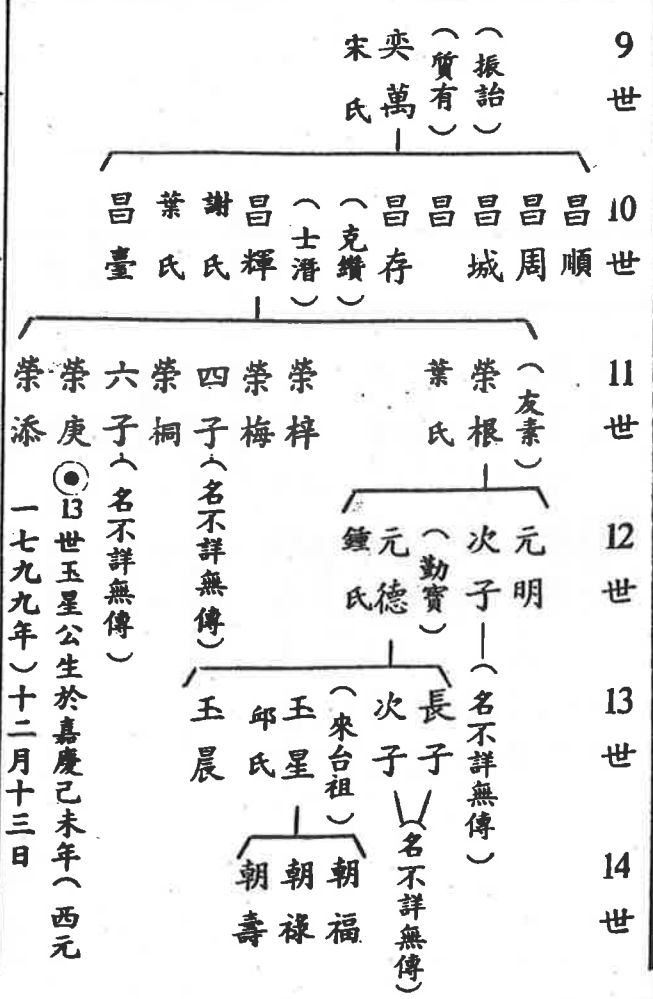 9世
（振詒）
（質有）
奕萬
宋氏
10世
昌順
昌周
昌城
昌
昌存
（克鑽）
（士潛）
昌輝
謝氏
葉氏
昌臺
11世
（友素）
榮根
葉氏
榮梓
榮梅
四子（名不詳無傳）
榮桐
六子（名不詳無傳）
榮庚
榮添
12世
元明
次子（名不詳無傳）
（勤寶）
元德
鍾氏
13世
長子
次子
（名不詳無傳）
（來台祖）
玉星
邱氏
玉晨
14世
朝福
朝祿
朝壽
13世玉星公生於嘉慶己未年（西元
一七九九年）十二月十三日